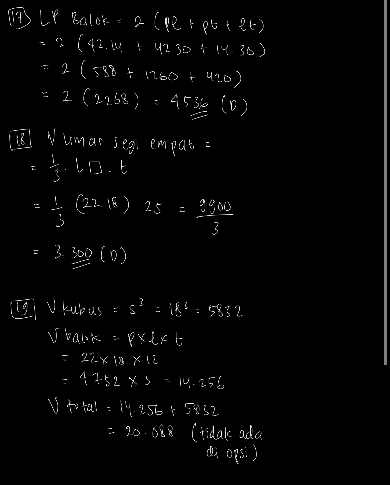 17) LP Balok = 2 (pl + pt + lt)
= 2 (42.14 + 42.30 + 14.30)
= 2 (588 + 1260 + 420)
= 2 (2268) = 4536 (D)
18 V limas segi empat =
= 1/3 . L□ . t
= 1/3 (22.18) 25 = 9900/3
= 3.300 (D)
19 V kubus = s³ = 18³ = 5832
V balok = p×l×t
= 22×18×12
= 4752 × 3 = 14.256
V total = 14.256 + 5832
= 20.088 (tidak ada
di opsi)